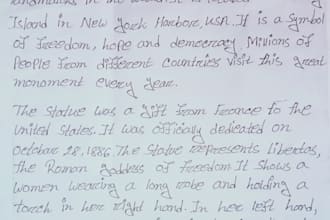 landmarks in the world. It is located
Island in New York Harbore, USA. It is a symbol
of freedom, hope and democracy. Millions of
People from different countries visit this great
monoment every year.
The Statue was a gift from France to the
United States. It was officially dedicated on
October 28, 1886. The Statue represents Libertas,
the Roman goddess of freedom. It shows a
women wearing a long robe and holding a
torch in her right hand. In her left hand,